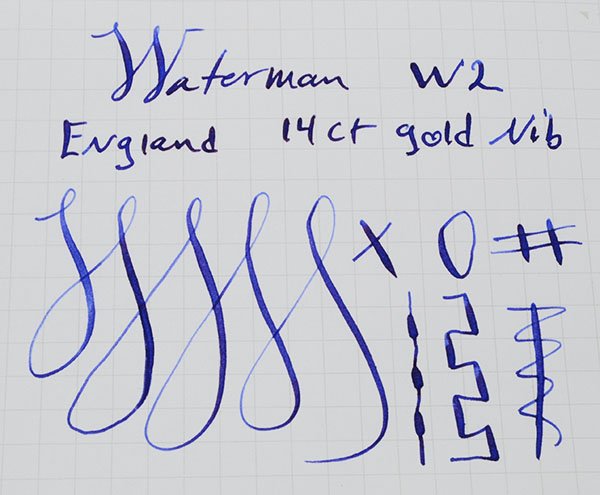 Waterman W2
England 14ct gold Nib
X O #